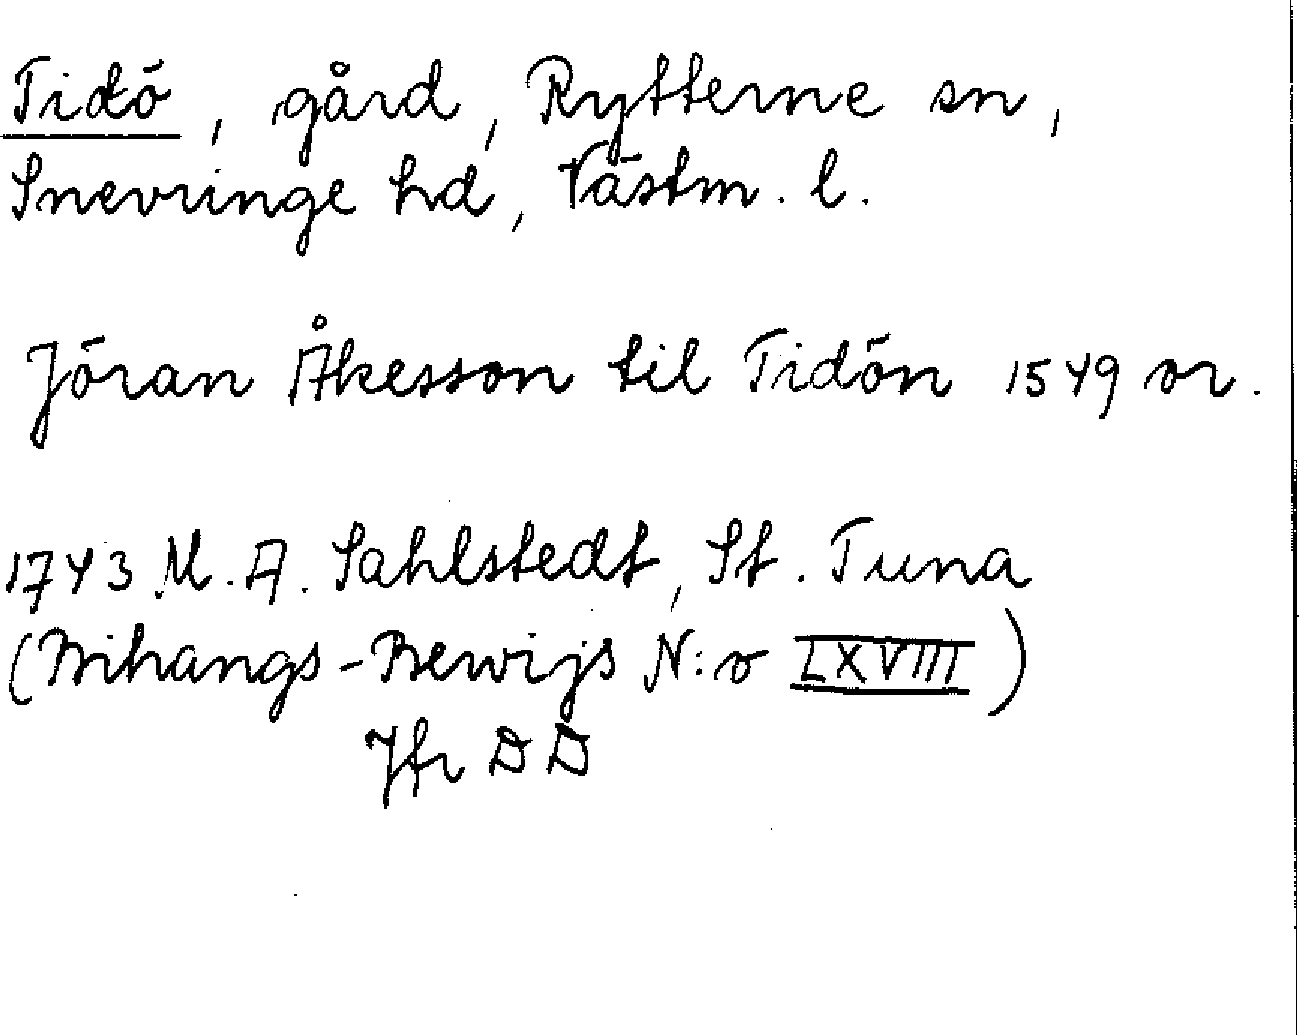 Tidö, gård, Rytterne sn,
Snevringe hd, Västm. l.
Jöran Åkesson til Tidön 1549 or.
1743 M. A. Sahlstedt, St. Tuna
(Bihangs-Bewijs N:o LXVIII)
Jfr DD